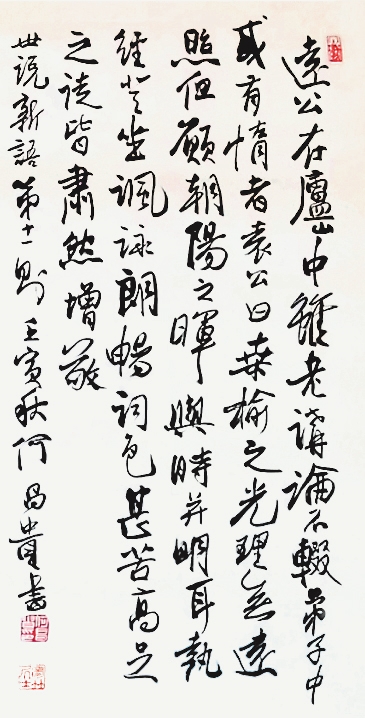 遠公在廬山中雖老講論不輟弟子中
或有惰者袁公曰桑榆之光理無遠
照但願朝陽之暉與時并明耳執
經登坐諷詠朗暢詞色甚苦高足
之徒皆肅然增敬
世説新語第十一則壬寅秋何昌貴書